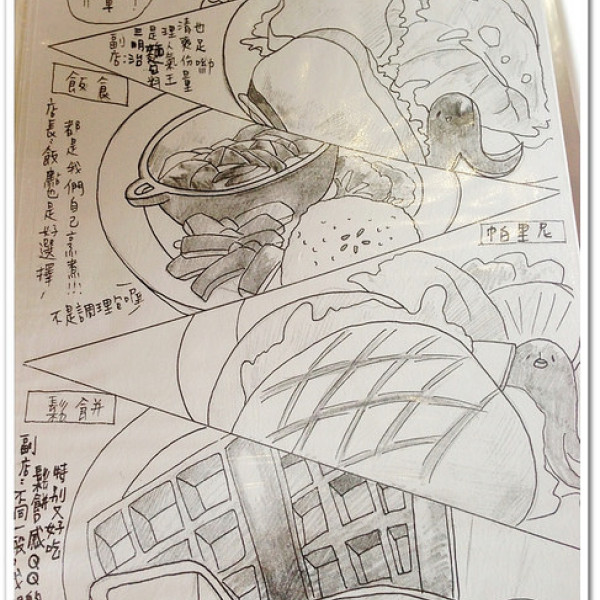 單!
副店:
三明治
是麵包料
理人氣王
清爽份量
也足呦
飯食
店長:飯點也是好選擇,
都是我們自己烹煮!!!
不是調理包喔
帕里尼
鬆餅
副店:不同一般
鬆餅感QQ的
特別又好吃